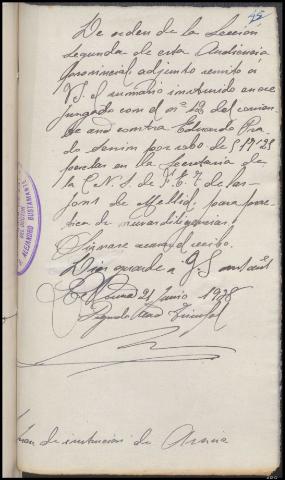 45
De orden de la Sección
segunda de esta Audiencia
provincial, adjunto remito á
V.S. el sumario instruido en ese
juzgado con el nº 12 del corrien-
te contra Eduardo
por robo de
pesetas en la Secretaria de
la C.N.S. de F.E.T. de las
Jons de Mellid, para prác-
tica de nuevas diligencias.
Sírvase acusar recibo.
Dios guarde a V.S. muchos
21 Junio 1938
Segundo Año Triunfal
ALEJANDRO BUSTAMANTE
de instrucción de Arzúa